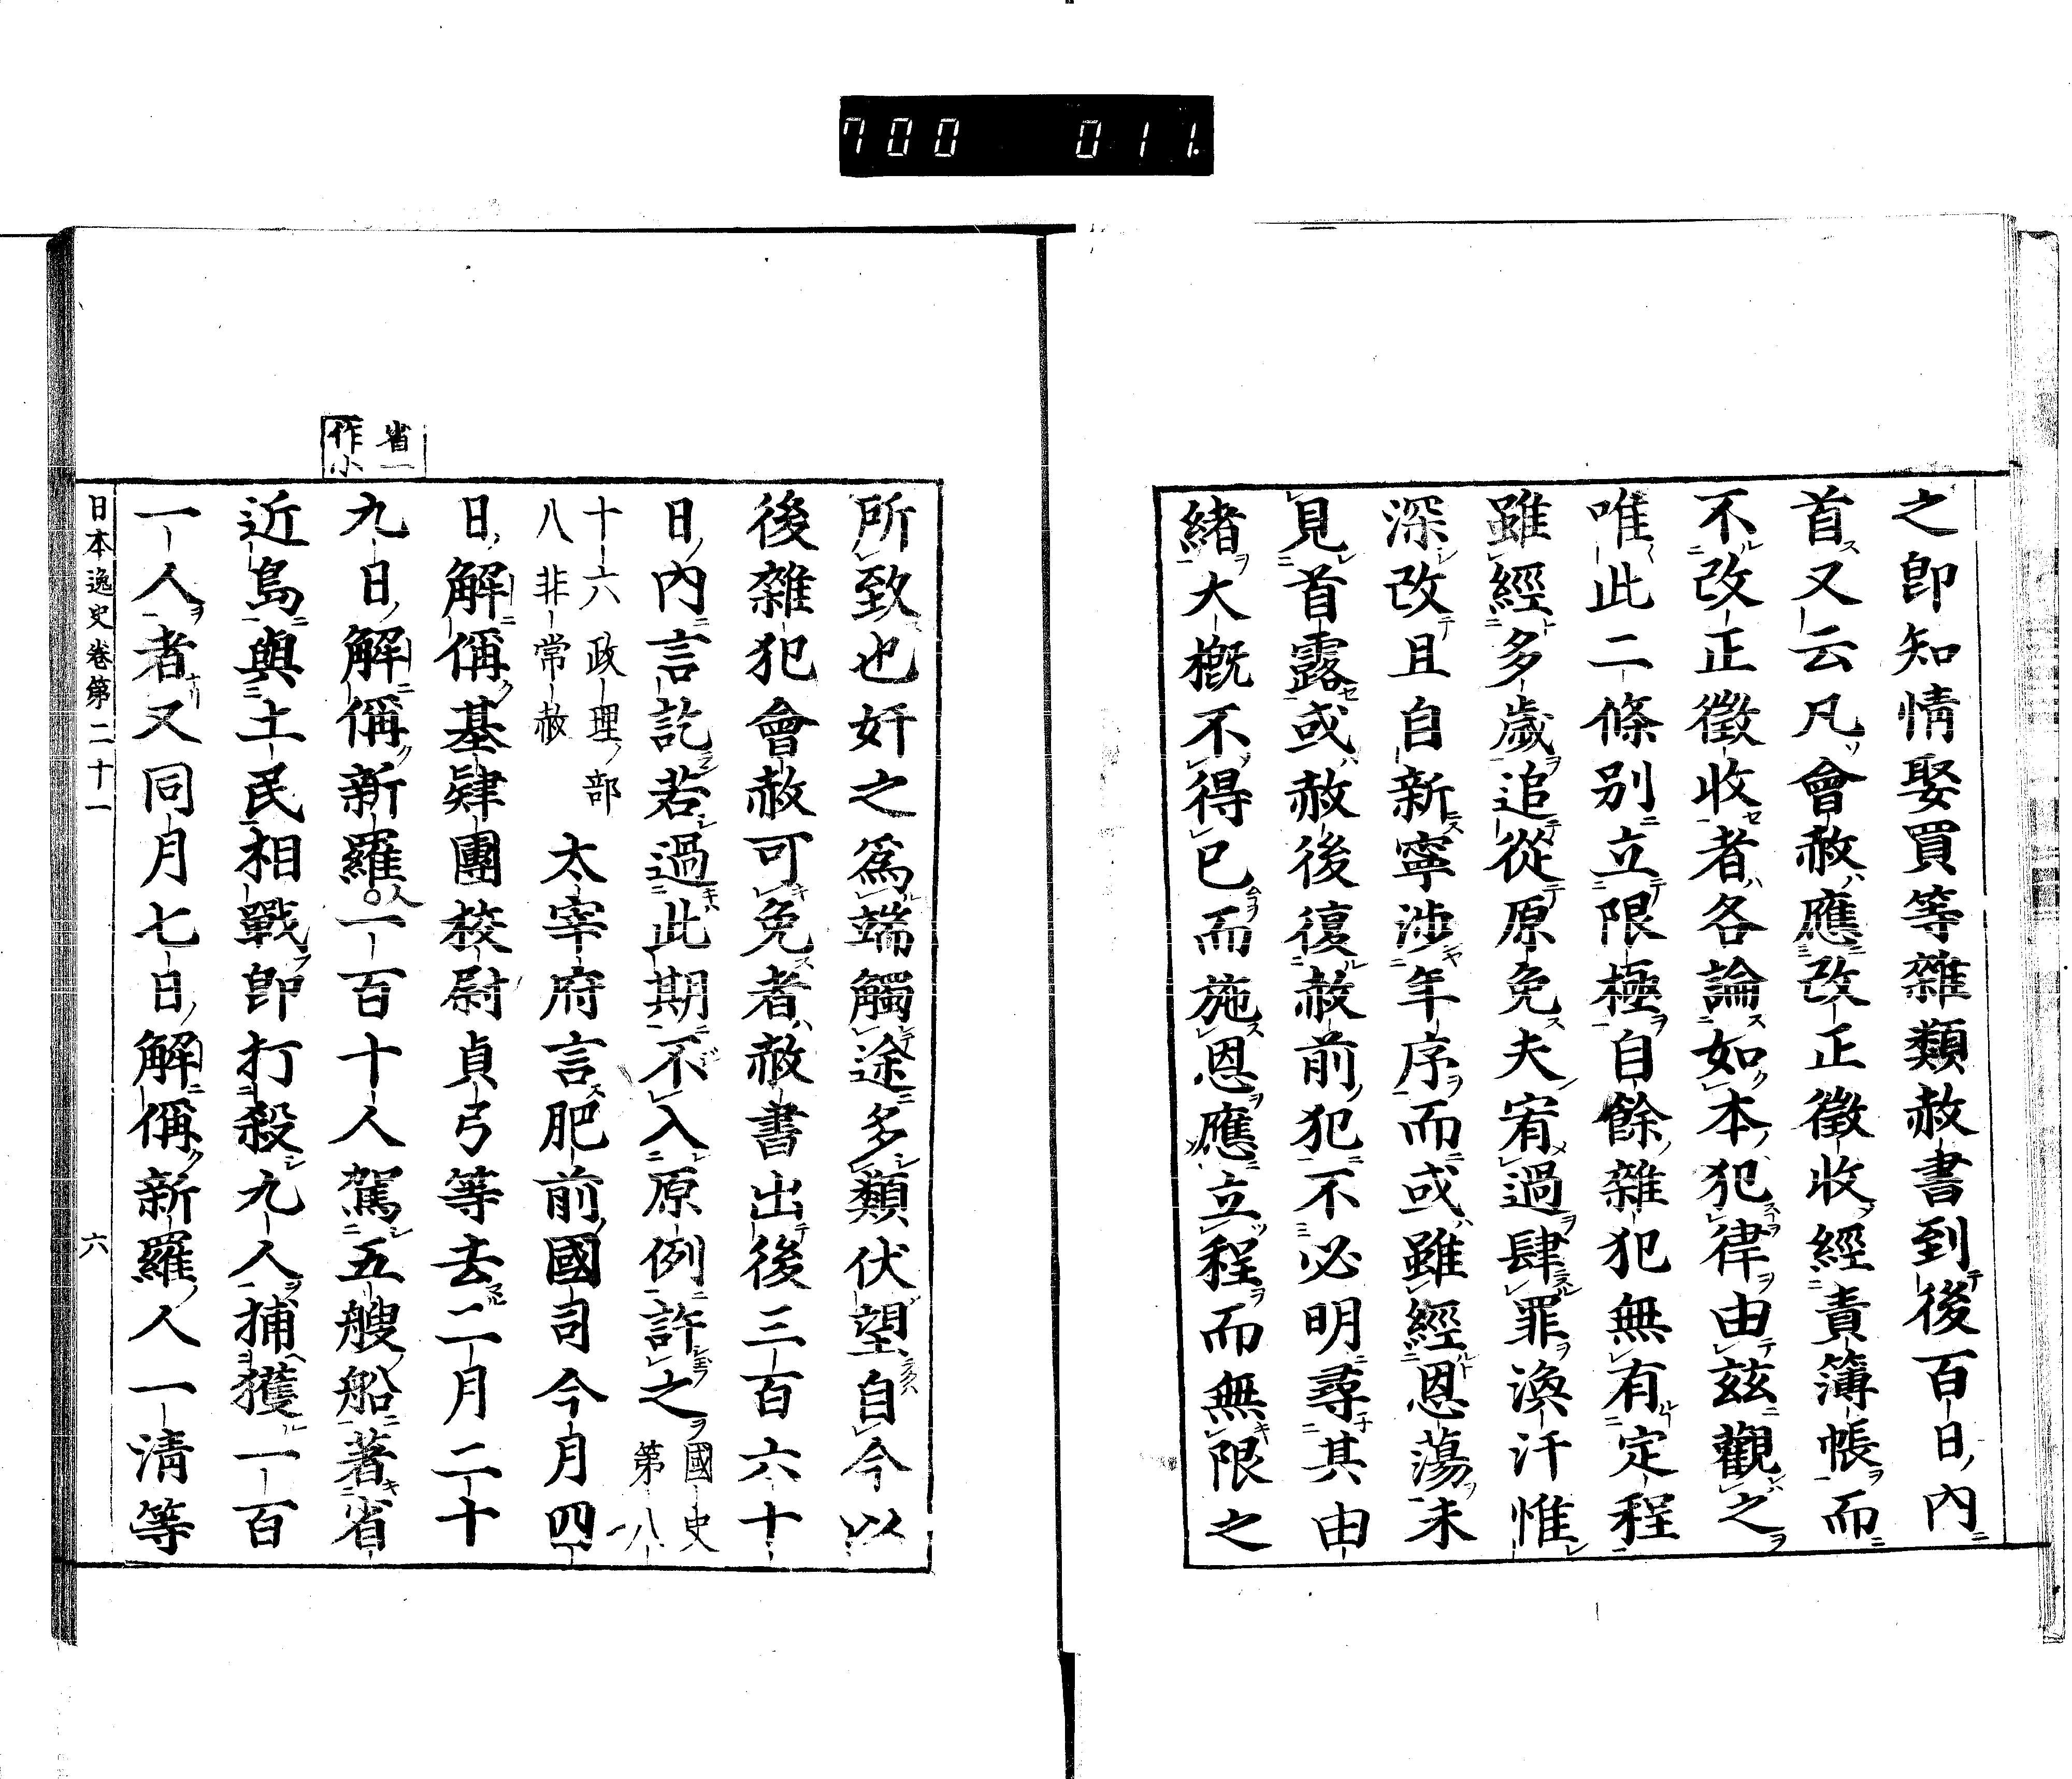 700 011.
之卽知情娶買等雜類赦書到後百日內
首又云凡會赦應改正徵收經責簿帳而
不改正徵收者各論如本犯律由玆觀之
唯此二條別立限極自餘雜犯無有定程
雖經多歲追從原免夫宥過肆罪渙汗惟
深改且自新寧涉年序而或雖經恩蕩未
見首露或赦後復赦前犯不必明尋其由
緖大槪不得已而施恩應立程而無限之
所致也奸之爲端觸途多類伏望自今以
後雜犯會赦可免者赦書出後三百六十
日內言訖若過此期不入原例許之國史第八
十六政理部八非常赦 太宰府言肥前國司今月四
日解偁基肄團校尉貞弓等去二月二十
省一作小
九日解偁新羅人一百十人駕五艘船著省
近島與土民相戰卽打殺九人捕獲一百
一人者又同月七日解偁新羅人一淸等
日本逸史卷第二十一 六